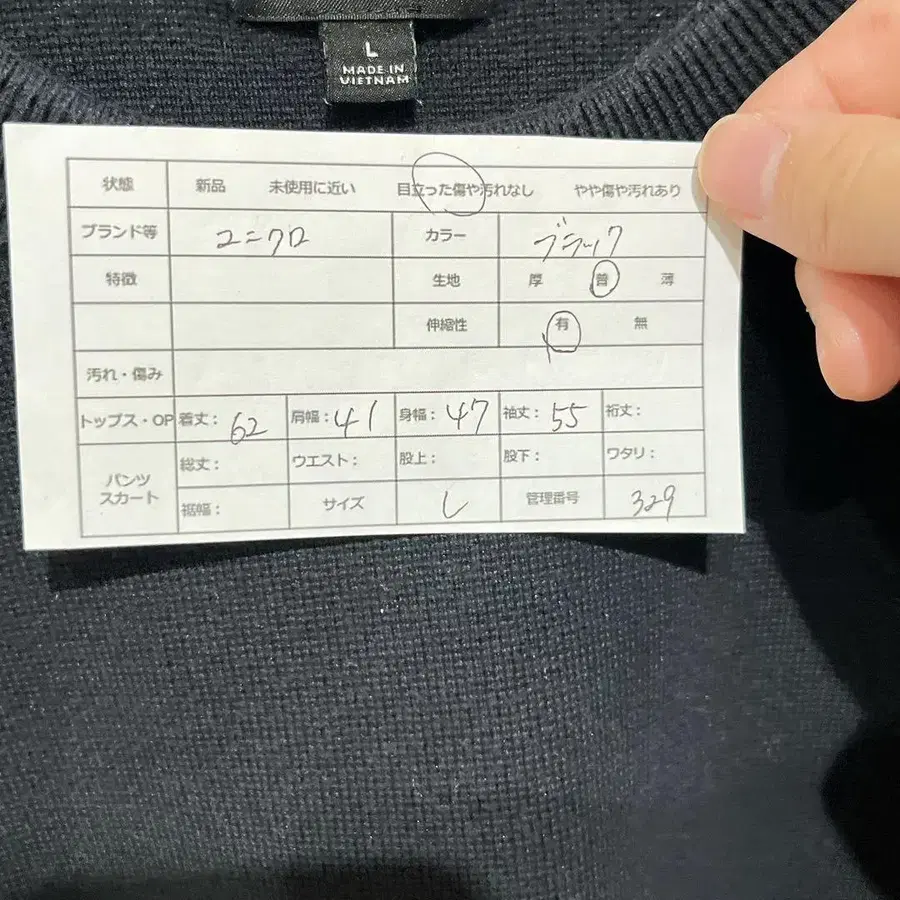 L
MADE IN
VIETNAM
状態 新品 未使用に近い 目立った傷や汚れなし やや傷や汚れあり
ブランド等 ユニクロ カラー ブラック
特徴 生地 厚 普 薄
伸縮性 有 無
汚れ・傷み
トップス・OP 着丈: 62 肩幅: 41 身幅: 47 袖丈: 55 裄丈:
パンツ
スカート
総丈: ウエスト: 股上: 股下: ワタリ:
裾幅: サイズ L 管理番号 329